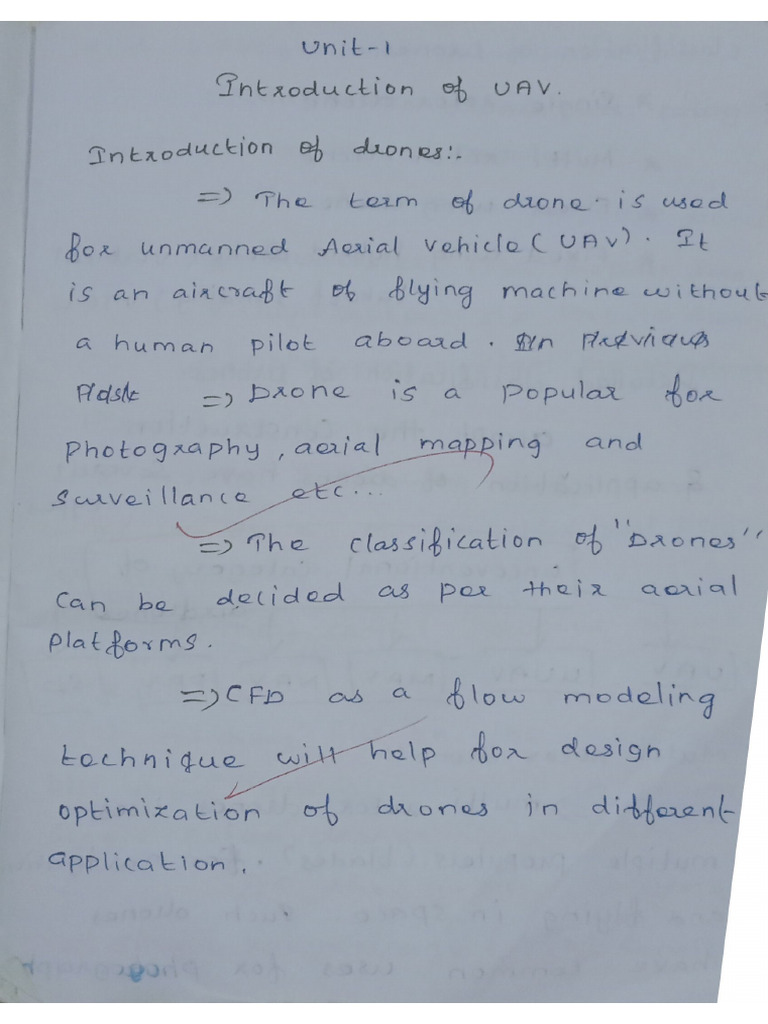 Unit-1
Introduction of UAV.
Introduction of drones:.
=> The term of drone is used
for unmanned Aerial vehicle (UAV). It
is an aircraft of flying machine without
a human pilot aboard. In Previous
Past => Drone is a popular for
photography, aerial mapping and
surveillance etc...
=> The classification of "Drones"
can be decided as per their aerial
platforms.
=> CFD as a flow modeling
technique will help for design
optimization of drones in different
application.